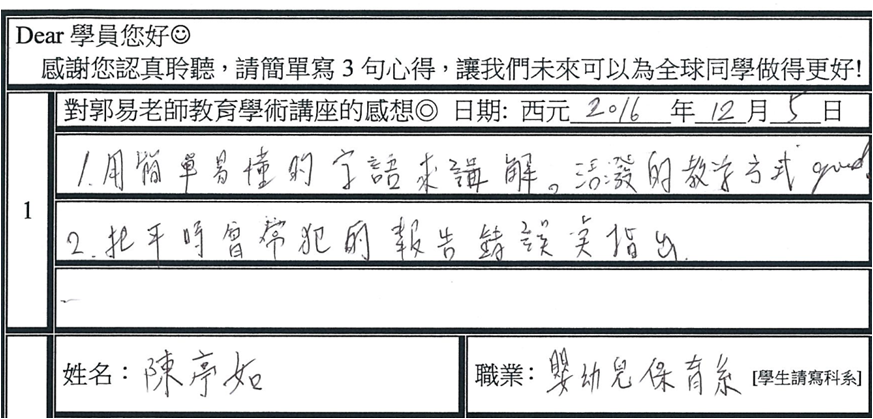 Dear 學員您好☺
感謝您認真聆聽，請簡單寫 3 句心得，讓我們未來可以為全球同學做得更好!
1
對郭易老師教育學術講座的感想◎ 日期: 西元 2016 年 12 月 5 日
1.用簡單易懂的字語來講解。活潑的教学方式 good.
2.把平時會常犯的報告錯誤 指出.
姓名：陳亭如
職業：嬰幼兒保育系 [學生請寫科系]